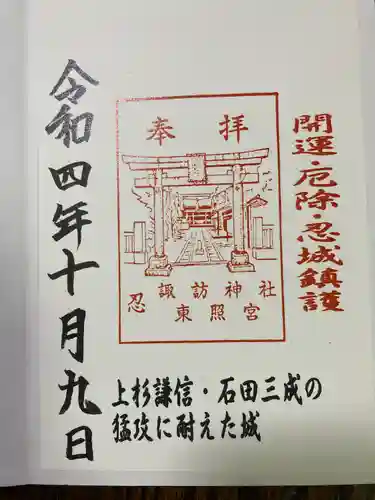 開運・厄除・忍城鎮護
奉拝
忍 諏訪神社
東照宮
上杉謙信・石田三成の
猛攻に耐えた城
令和四年十月九日